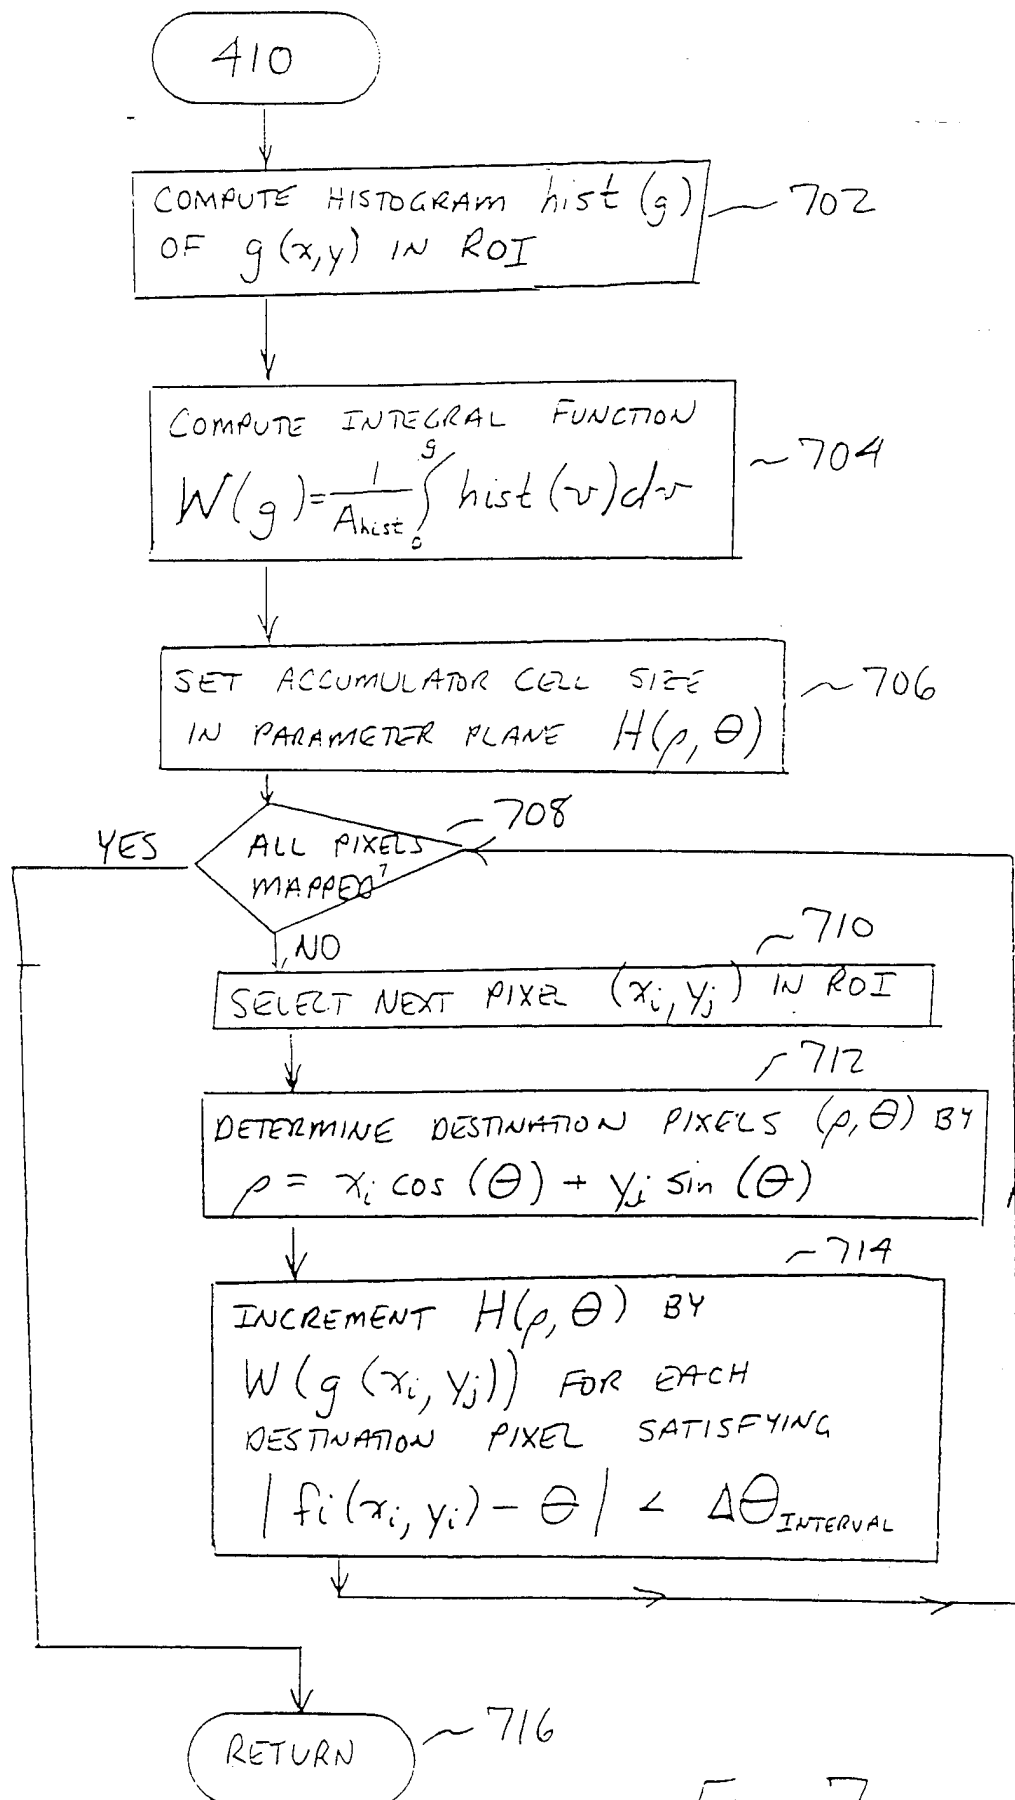 410
COMPUTE HISTOGRAM hist (g)
OF g(x,y) IN ROI
702
COMPUTE INTEGRAL FUNCTION
W(g) = 1/A_hist ∫_0^g hist (v) dv
704
SET ACCUMULATOR CELL SIZE
IN PARAMETER PLANE H(ρ, θ)
706
708
YES
ALL PIXELS
MAPPED?
NO
710
SELECT NEXT PIXEL (x_i, y_j) IN ROI
712
DETERMINE DESTINATION PIXELS (ρ, θ) BY
ρ = x_i cos (θ) + y_j sin (θ)
714
INCREMENT H(ρ, θ) BY
W(g (x_i, y_j)) FOR EACH
DESTINATION PIXEL SATISFYING
| fi (x_i, y_i) - θ | < Δθ_INTERVAL
RETURN
716